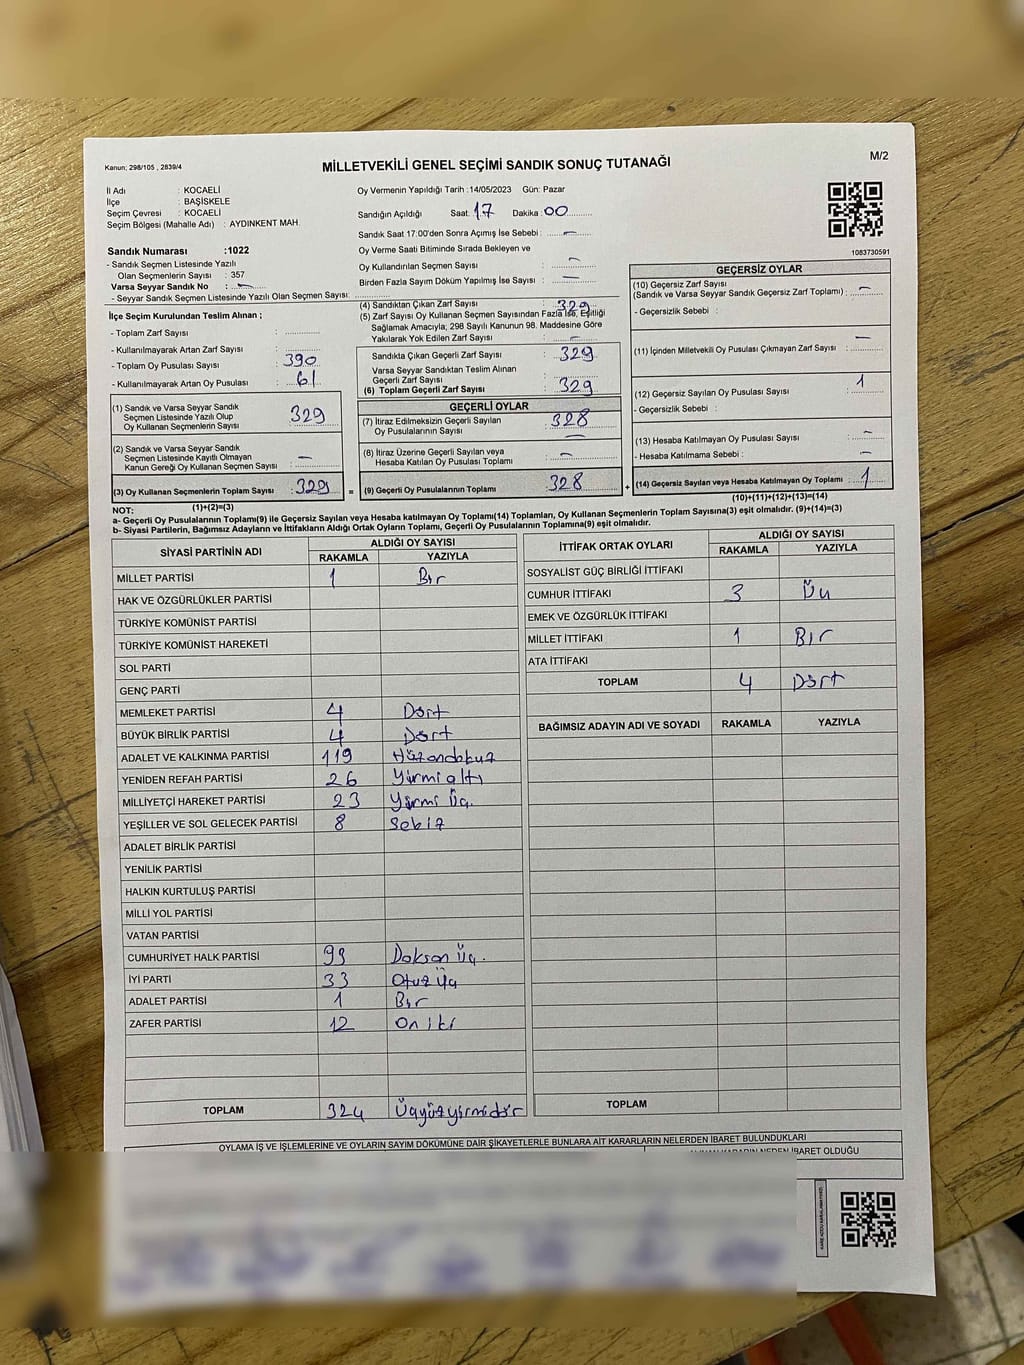 Kanun; 298/105 , 2839/4
MİLLETVEKİLİ GENEL SEÇİMİ SANDIK SONUÇ TUTANAĞI
M/2
İl Adı : KOCAELİ
İlçe : BAŞİSKELE
Seçim Çevresi : KOCAELİ
Seçim Bölgesi (Mahalle Adı) : AYDINKENT MAH.
Oy Vermenin Yapıldığı Tarih :14/05/2023 Gün: Pazar
Sandığın Açıldığı Saat. 17 Dakika :00
Sandık Saat 17:00'den Sonra Açımış İse Sebebi : —
Oy Verme Saati Bitiminde Sırada Bekleyen ve
Oy Kullandırılan Seçmen Sayısı : —
Birden Fazla Sayım Döküm Yapılmış İse Sayısı : —
1083730591
Sandık Numarası :1022
- Sandık Seçmen Listesinde Yazılı
Olan Seçmenlerin Sayısı : 357
Varsa Seyyar Sandık No : —
- Seyyar Sandık Seçmen Listesinde Yazılı Olan Seçmen Sayısı:
İlçe Seçim Kurulundan Teslim Alınan ;
- Toplam Zarf Sayısı :
- Kullanılmayarak Artan Zarf Sayısı :
- Toplam Oy Pusulası Sayısı : 390
- Kullanılmayarak Artan Oy Pusulası : 61
(1) Sandık ve Varsa Seyyar Sandık
Seçmen Listesinde Yazılı Olup
Oy Kullanan Seçmenlerin Sayısı : 329
(2) Sandık ve Varsa Seyyar Sandık
Seçmen Listesinde Kayıtlı Olmayan
Kanun Gereği Oy Kullanan Seçmen Sayısı : —
(3) Oy Kullanan Seçmenlerin Toplam Sayısı : 329 =
(1)+(2)=(3)
(4) Sandıktan Çıkan Zarf Sayısı : 329
(5) Zarf Sayısı Oy Kullanan Seçmen Sayısından Fazla İse, Eşitliği
Sağlamak Amacıyla; 298 Sayılı Kanunun 98. Maddesine Göre
Yakılarak Yok Edilen Zarf Sayısı : —
Sandıkta Çıkan Geçerli Zarf Sayısı : 329
Varsa Seyyar Sandıktan Teslim Alınan
Geçerli Zarf Sayısı :
(6) Toplam Geçerli Zarf Sayısı : 329
GEÇERLİ OYLAR
(7) İtiraz Edilmeksizin Geçerli Sayılan
Oy Pusulalarının Sayısı : 328
(8) İtiraz Üzerine Geçerli Sayılan veya
Hesaba Katılan Oy Pusulası Toplamı : —
(9) Geçerli Oy Pusulalarının Toplamı : 328 +
GEÇERSİZ OYLAR
(10) Geçersiz Zarf Sayısı
(Sandık ve Varsa Seyyar Sandık Geçersiz Zarf Toplamı) : —
- Geçersizlik Sebebi :
(11) İçinden Milletvekili Oy Pusulası Çıkmayan Zarf Sayısı : —
(12) Geçersiz Sayılan Oy Pusulası Sayısı : 1
- Geçersizlik Sebebi :
(13) Hesaba Katılmayan Oy Pusulası Sayısı : —
- Hesaba Katılmama Sebebi : —
(14) Geçersiz Sayılan veya Hesaba Katılmayan Oy Toplamı : 1
(10)+(11)+(12)+(13)=(14)
NOT:
a- Geçerli Oy Pusulalarının Toplamı(9) ile Geçersiz Sayılan veya Hesaba katılmayan Oy Toplamı(14) Toplamları, Oy Kullanan Seçmenlerin Toplam Sayısına(3) eşit olmalıdır. (9)+(14)=(3)
b- Siyasi Partilerin, Bağımsız Adayların ve İttifakların Aldığı Ortak Oyların Toplamı, Geçerli Oy Pusulalarının Toplamına(9) eşit olmalıdır.
SİYASİ PARTİNİN ADI ALDIĞI OY SAYISI
RAKAMLA YAZIYLA
MİLLET PARTİSİ 1 Bir
HAK VE ÖZGÜRLÜKLER PARTİSİ
TÜRKİYE KOMÜNİST PARTİSİ
TÜRKİYE KOMÜNİST HAREKETİ
SOL PARTİ
GENÇ PARTİ
MEMLEKET PARTİSİ 4 Dört
BÜYÜK BİRLİK PARTİSİ 4 Dört
ADALET VE KALKINMA PARTİSİ 119
YENİDEN REFAH PARTİSİ 26 Yirmialtı
MİLLİYETÇİ HAREKET PARTİSİ 23 Yirmi Üç.
YEŞİLLER VE SOL GELECEK PARTİSİ 8 Sekiz
ADALET BİRLİK PARTİSİ
YENİLİK PARTİSİ
HALKIN KURTULUŞ PARTİSİ
MİLLİ YOL PARTİSİ
VATAN PARTİSİ
CUMHURİYET HALK PARTİSİ 93 Doksan Üç.
İYİ PARTİ 33 Otuz Üç
ADALET PARTİSİ 1 Bir
ZAFER PARTİSİ 12 On iki
TOPLAM 324 Üçyüzyirmidör
İTTİFAK ORTAK OYLARI ALDIĞI OY SAYISI
RAKAMLA YAZIYLA
SOSYALİST GÜÇ BİRLİĞİ İTTİFAKI
CUMHUR İTTİFAKI 3 Üç
EMEK VE ÖZGÜRLÜK İTTİFAKI
MİLLET İTTİFAKI 1 Bir
ATA İTTİFAKI
TOPLAM 4 Dört
BAĞIMSIZ ADAYIN ADI VE SOYADI RAKAMLA YAZIYLA
TOPLAM
OYLAMA İŞ VE İŞLEMLERİNE VE OYLARIN SAYIM DÖKÜMÜNE DAİR ŞİKAYETLERLE BUNLARA AİT KARARLARIN NELERDEN İBARET BULUNDUKLARI
KARARIN NEDEN İBARET OLDUĞU